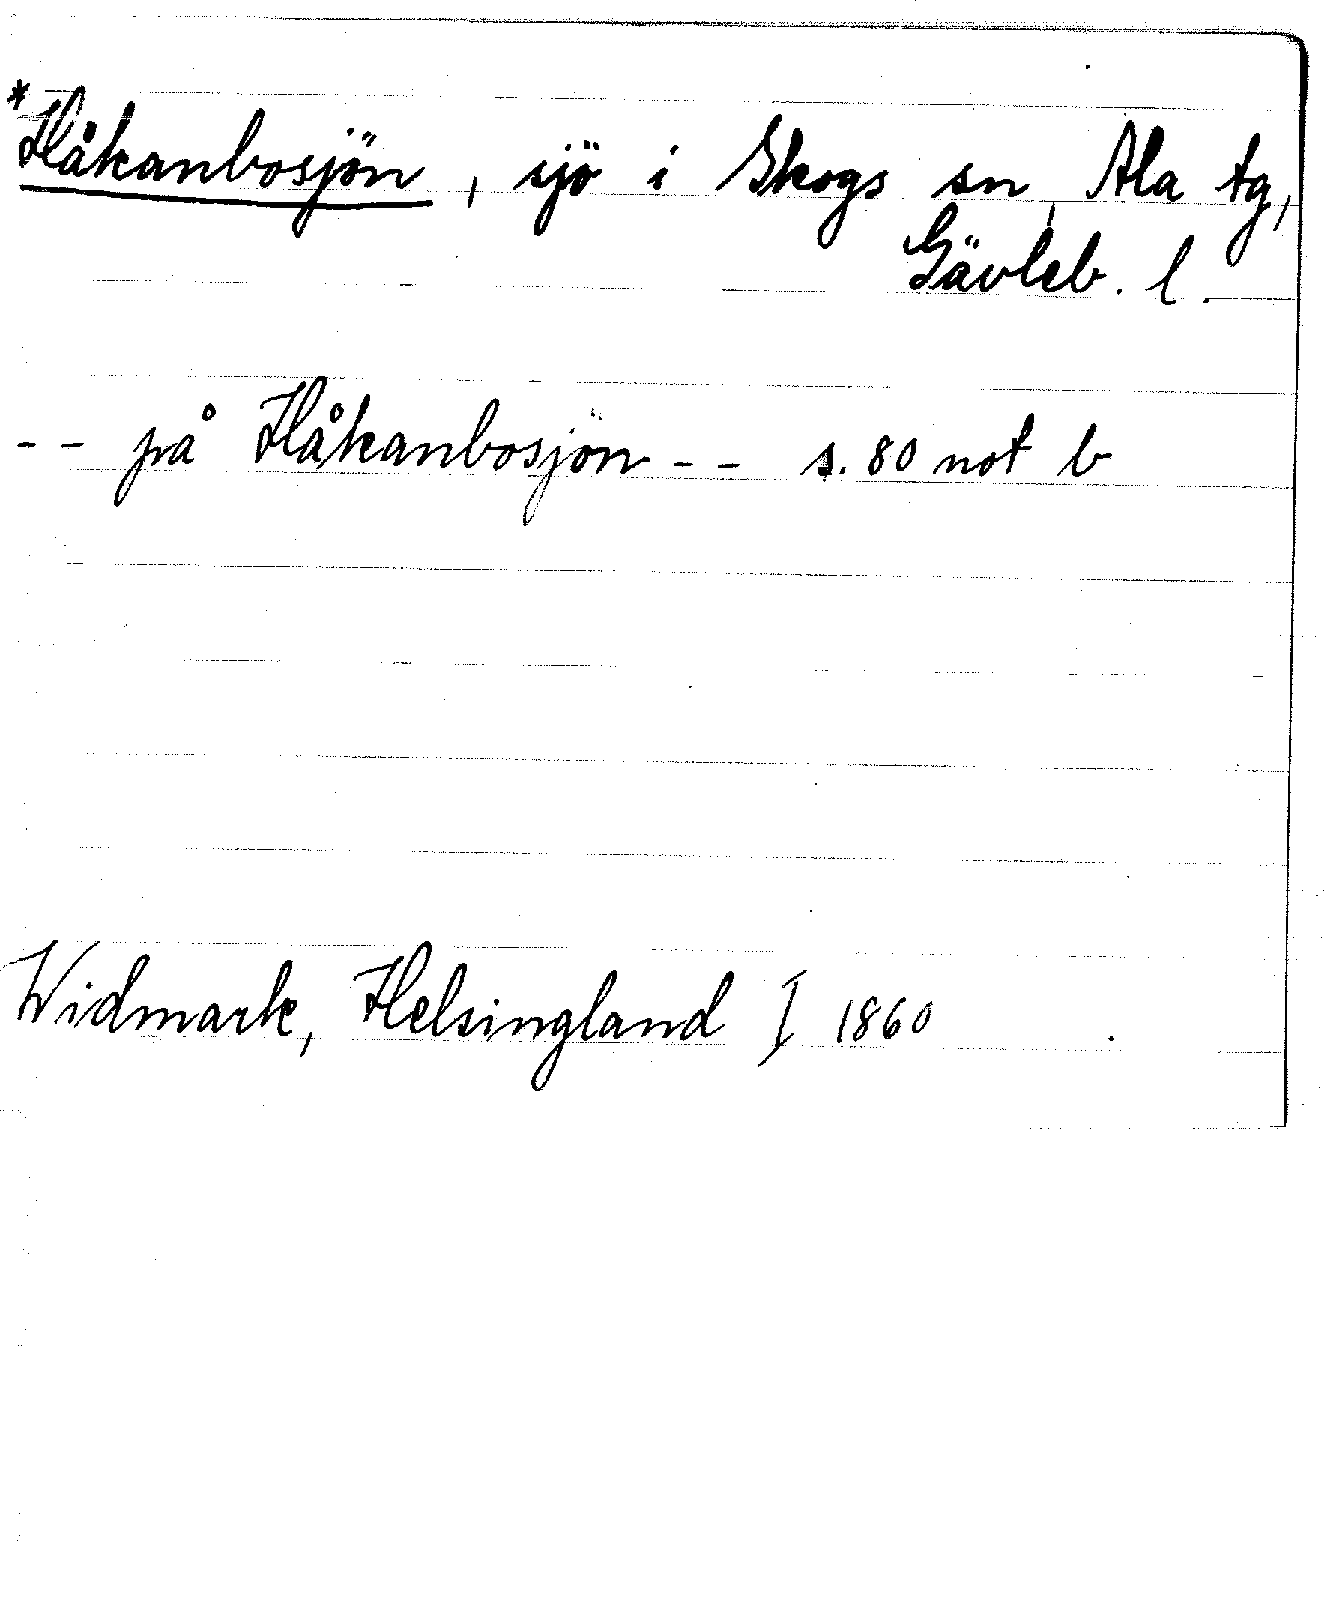 *Håkanbosjön, sjö i Skogs sn, Ala tg,
Gävleb. l.
-- på Håkanbosjön -- s. 80 not b
Widmark, Helsingland I 1860